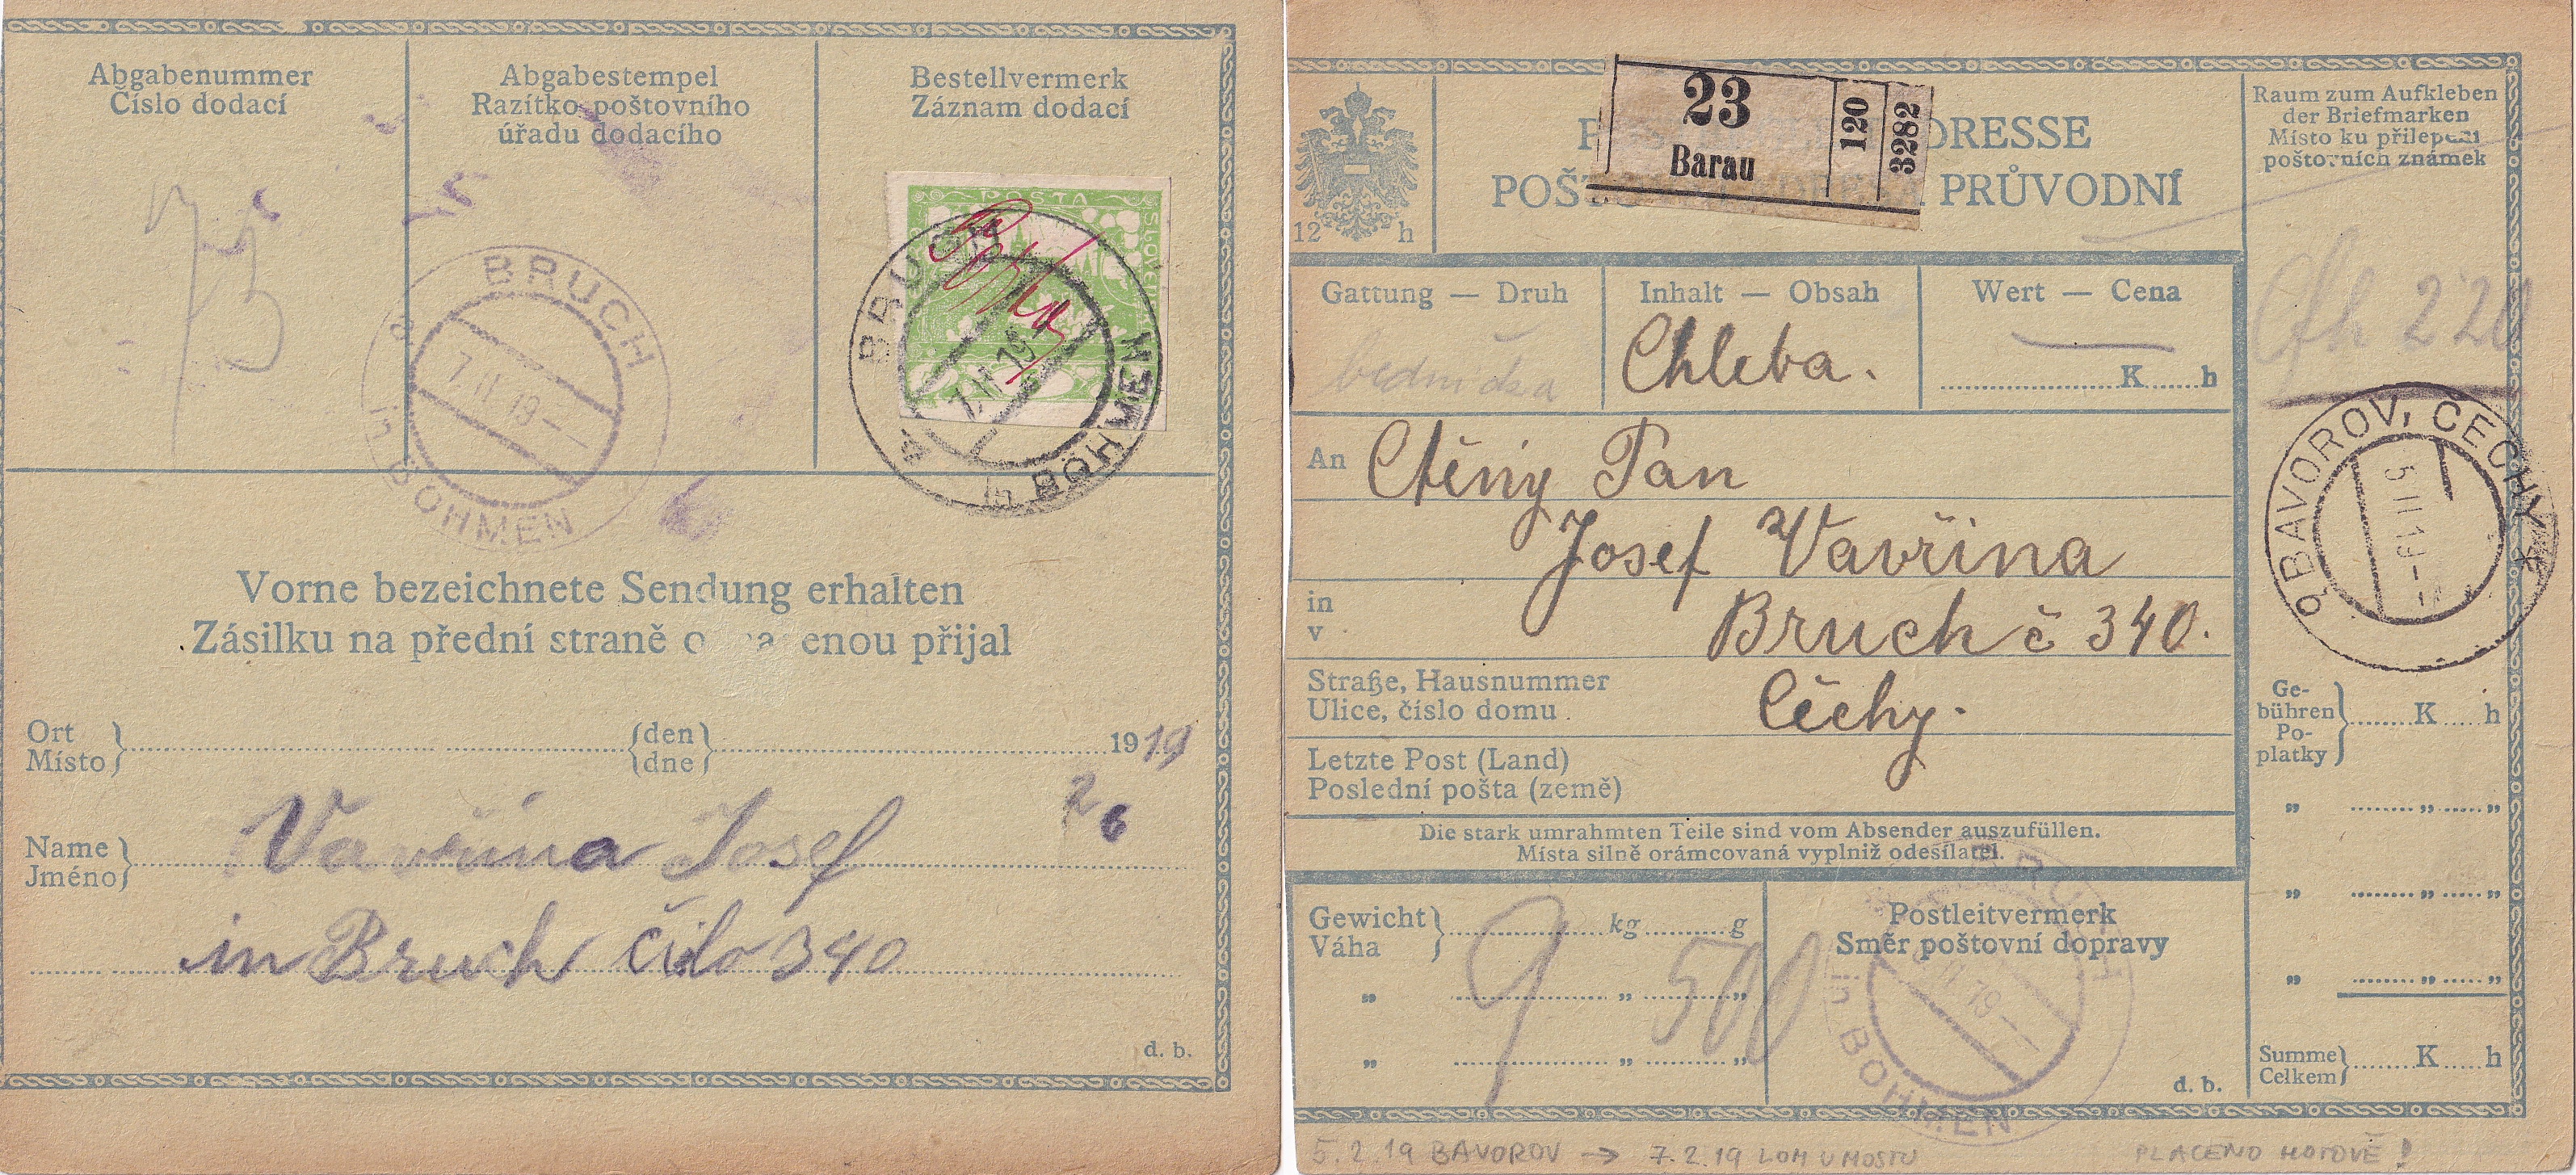 Abgabenummer
Číslo dodací
Abgabestempel
Razítko poštovního
úřadu dodacího
Bestellvermerk
Záznam dodací
POŠTA
BRUCH
7.II.19
a
in BÖHMEN
BRUCH
7.II.19
in BÖHMEN
Vorne bezeichnete Sendung erhalten
Zásilku na přední straně o a enou přijal
Ort
Místo
den
dne
1919
26
Name
Jméno
Vavřina Josef
in Bruch čílo 340
d. b.
23
Barau
120
3282
DRESSE
POŠ PRŮVODNÍ
12 h
Raum zum Aufkleben
der Briefmarken
Místo ku přilepení
poštovních známek
220
Gattung — Druh
Inhalt — Obsah
Chleba.
Wert — Cena
K h
BAVOROV, ČECHY
5 II 19
An
Ctěný Pan
Josef Vavřina
in
v
Bruch č 340.
Straße, Hausnummer
Ulice, číslo domu
Čechy.
Letzte Post (Land)
Poslední pošta (země)
Die stark umrahmten Teile sind vom Absender auszufüllen.
Místa silně orámcovaná vyplniž odesílatel.
Gewicht
Váha
kg g
9 500
Postleitvermerk
Směr poštovní dopravy
BRUCH
II 19
in BÖHMEN
d. b.
Ge-
bühren
Po-
platky
K h
Summe
Celkem
K h
5.2.19 BAVOROV → 7.2.19 LOM U MOSTU
PLACENO HOTOVĚ!